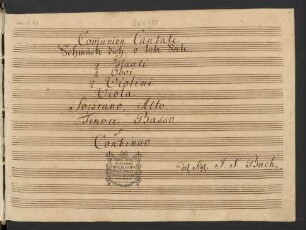 Comunion Cantate
Schmücke dich, o liebe Seele.
2 Flauti
2 Oboi
2 Violini
Viola
Soprano, Alto.
Tenore Basso
Continuo
del Sigr. J. S. Bach.